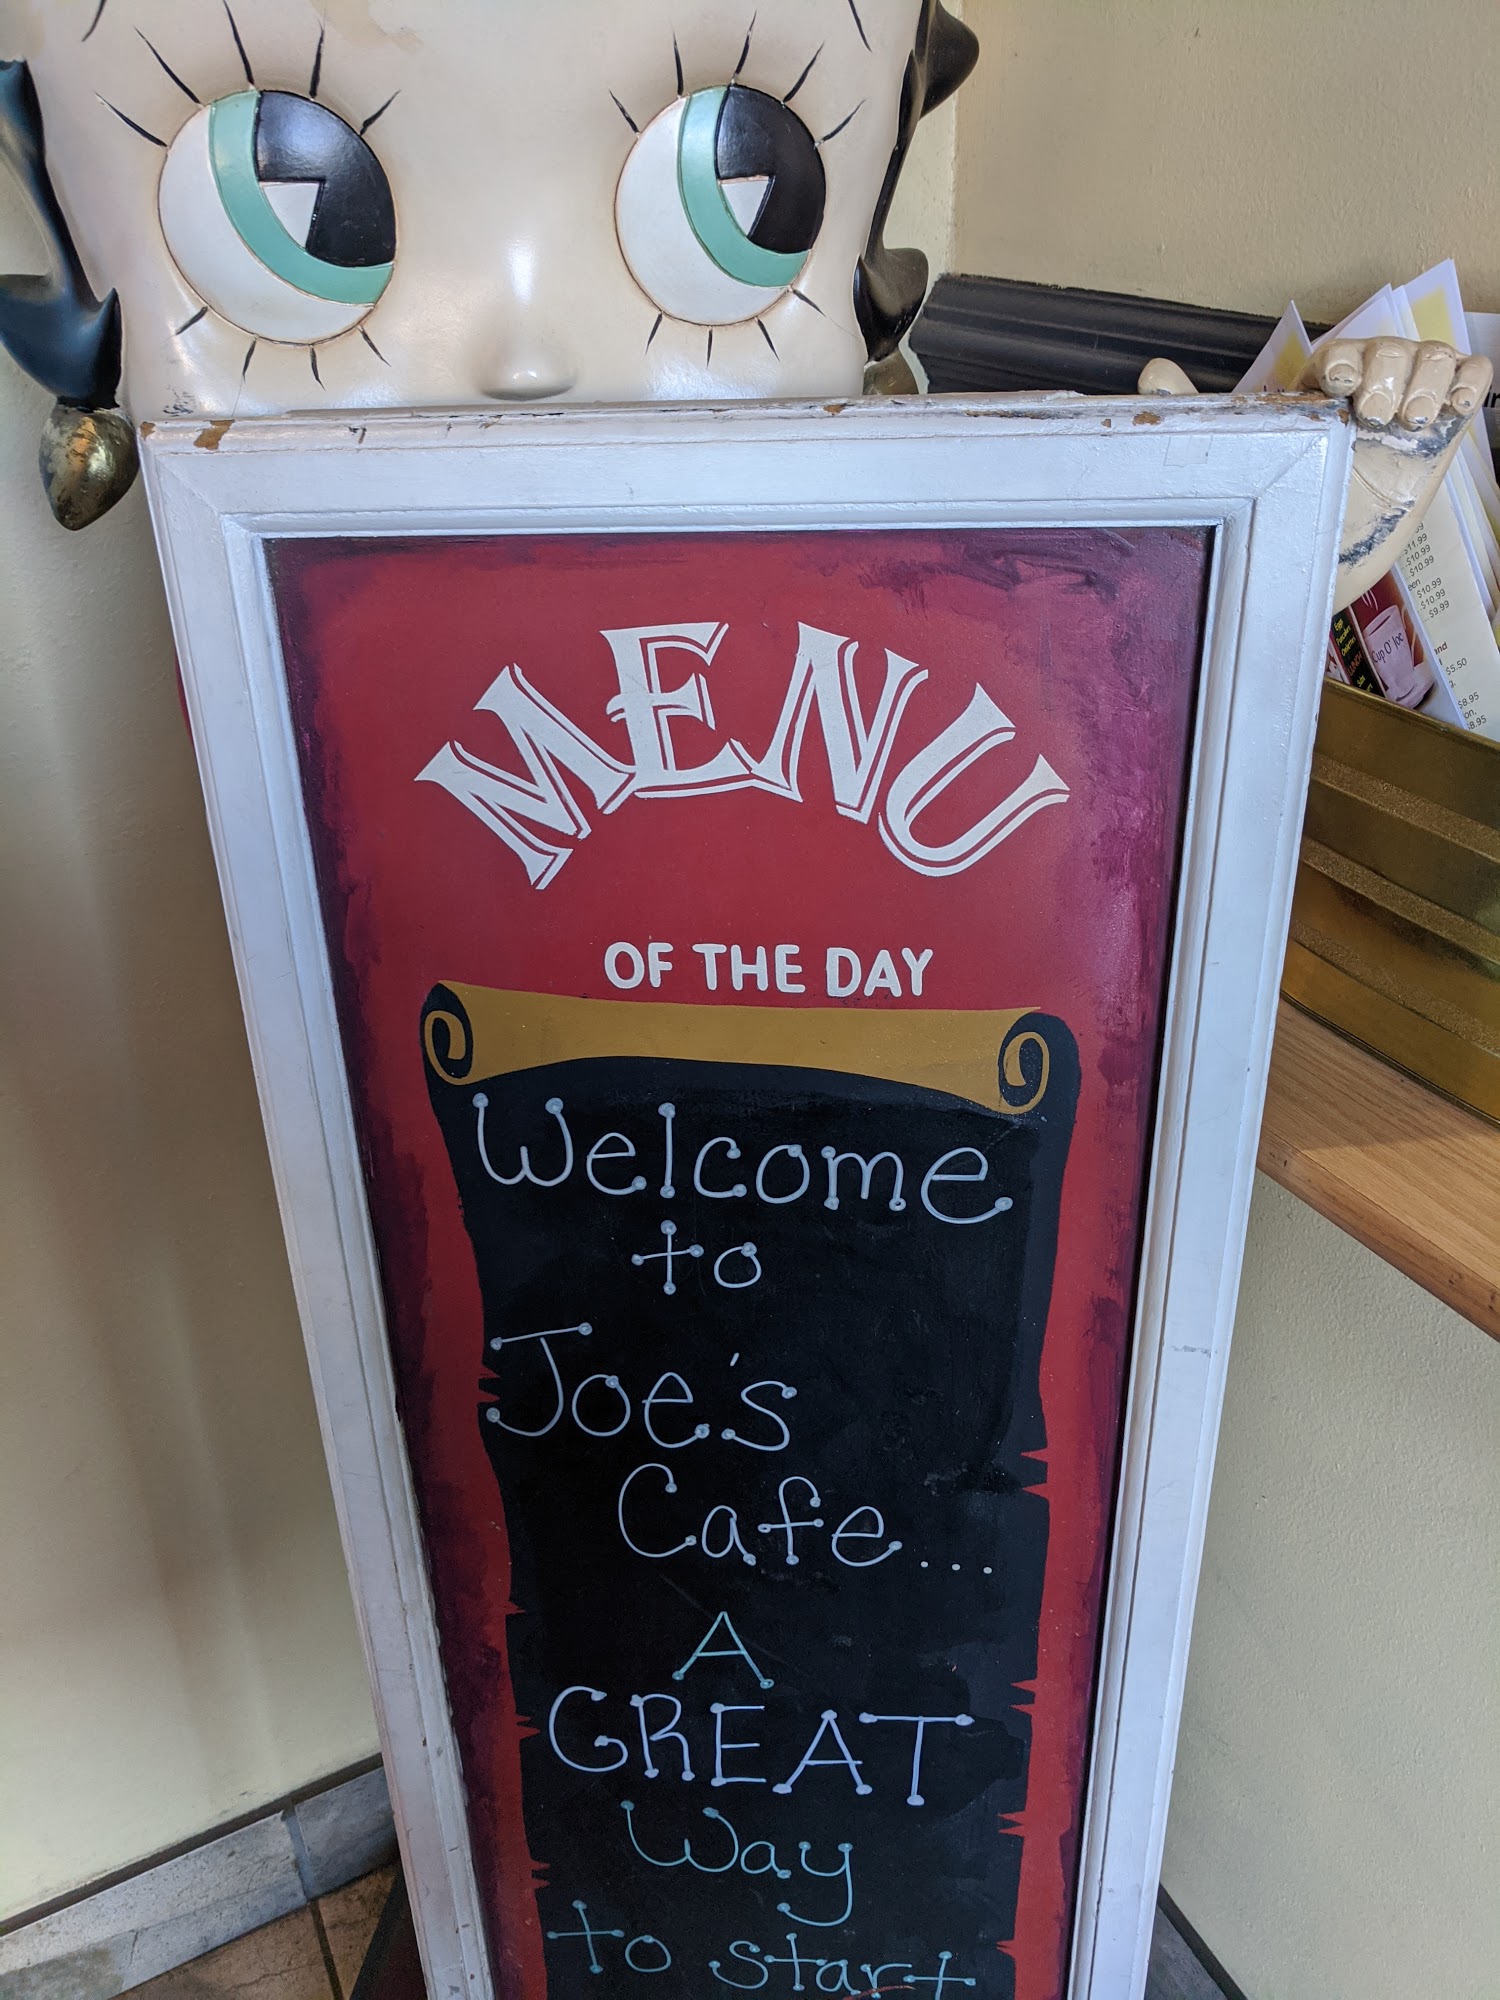 MENU
OF THE DAY
Welcome
to
Joe's
Cafe...
A
GREAT
Way
to start
$11.99
$10.99
$10.99
$10.99
$10.99
$9.99
Cup O' Joe
LUNCH
$5.50
$8.95